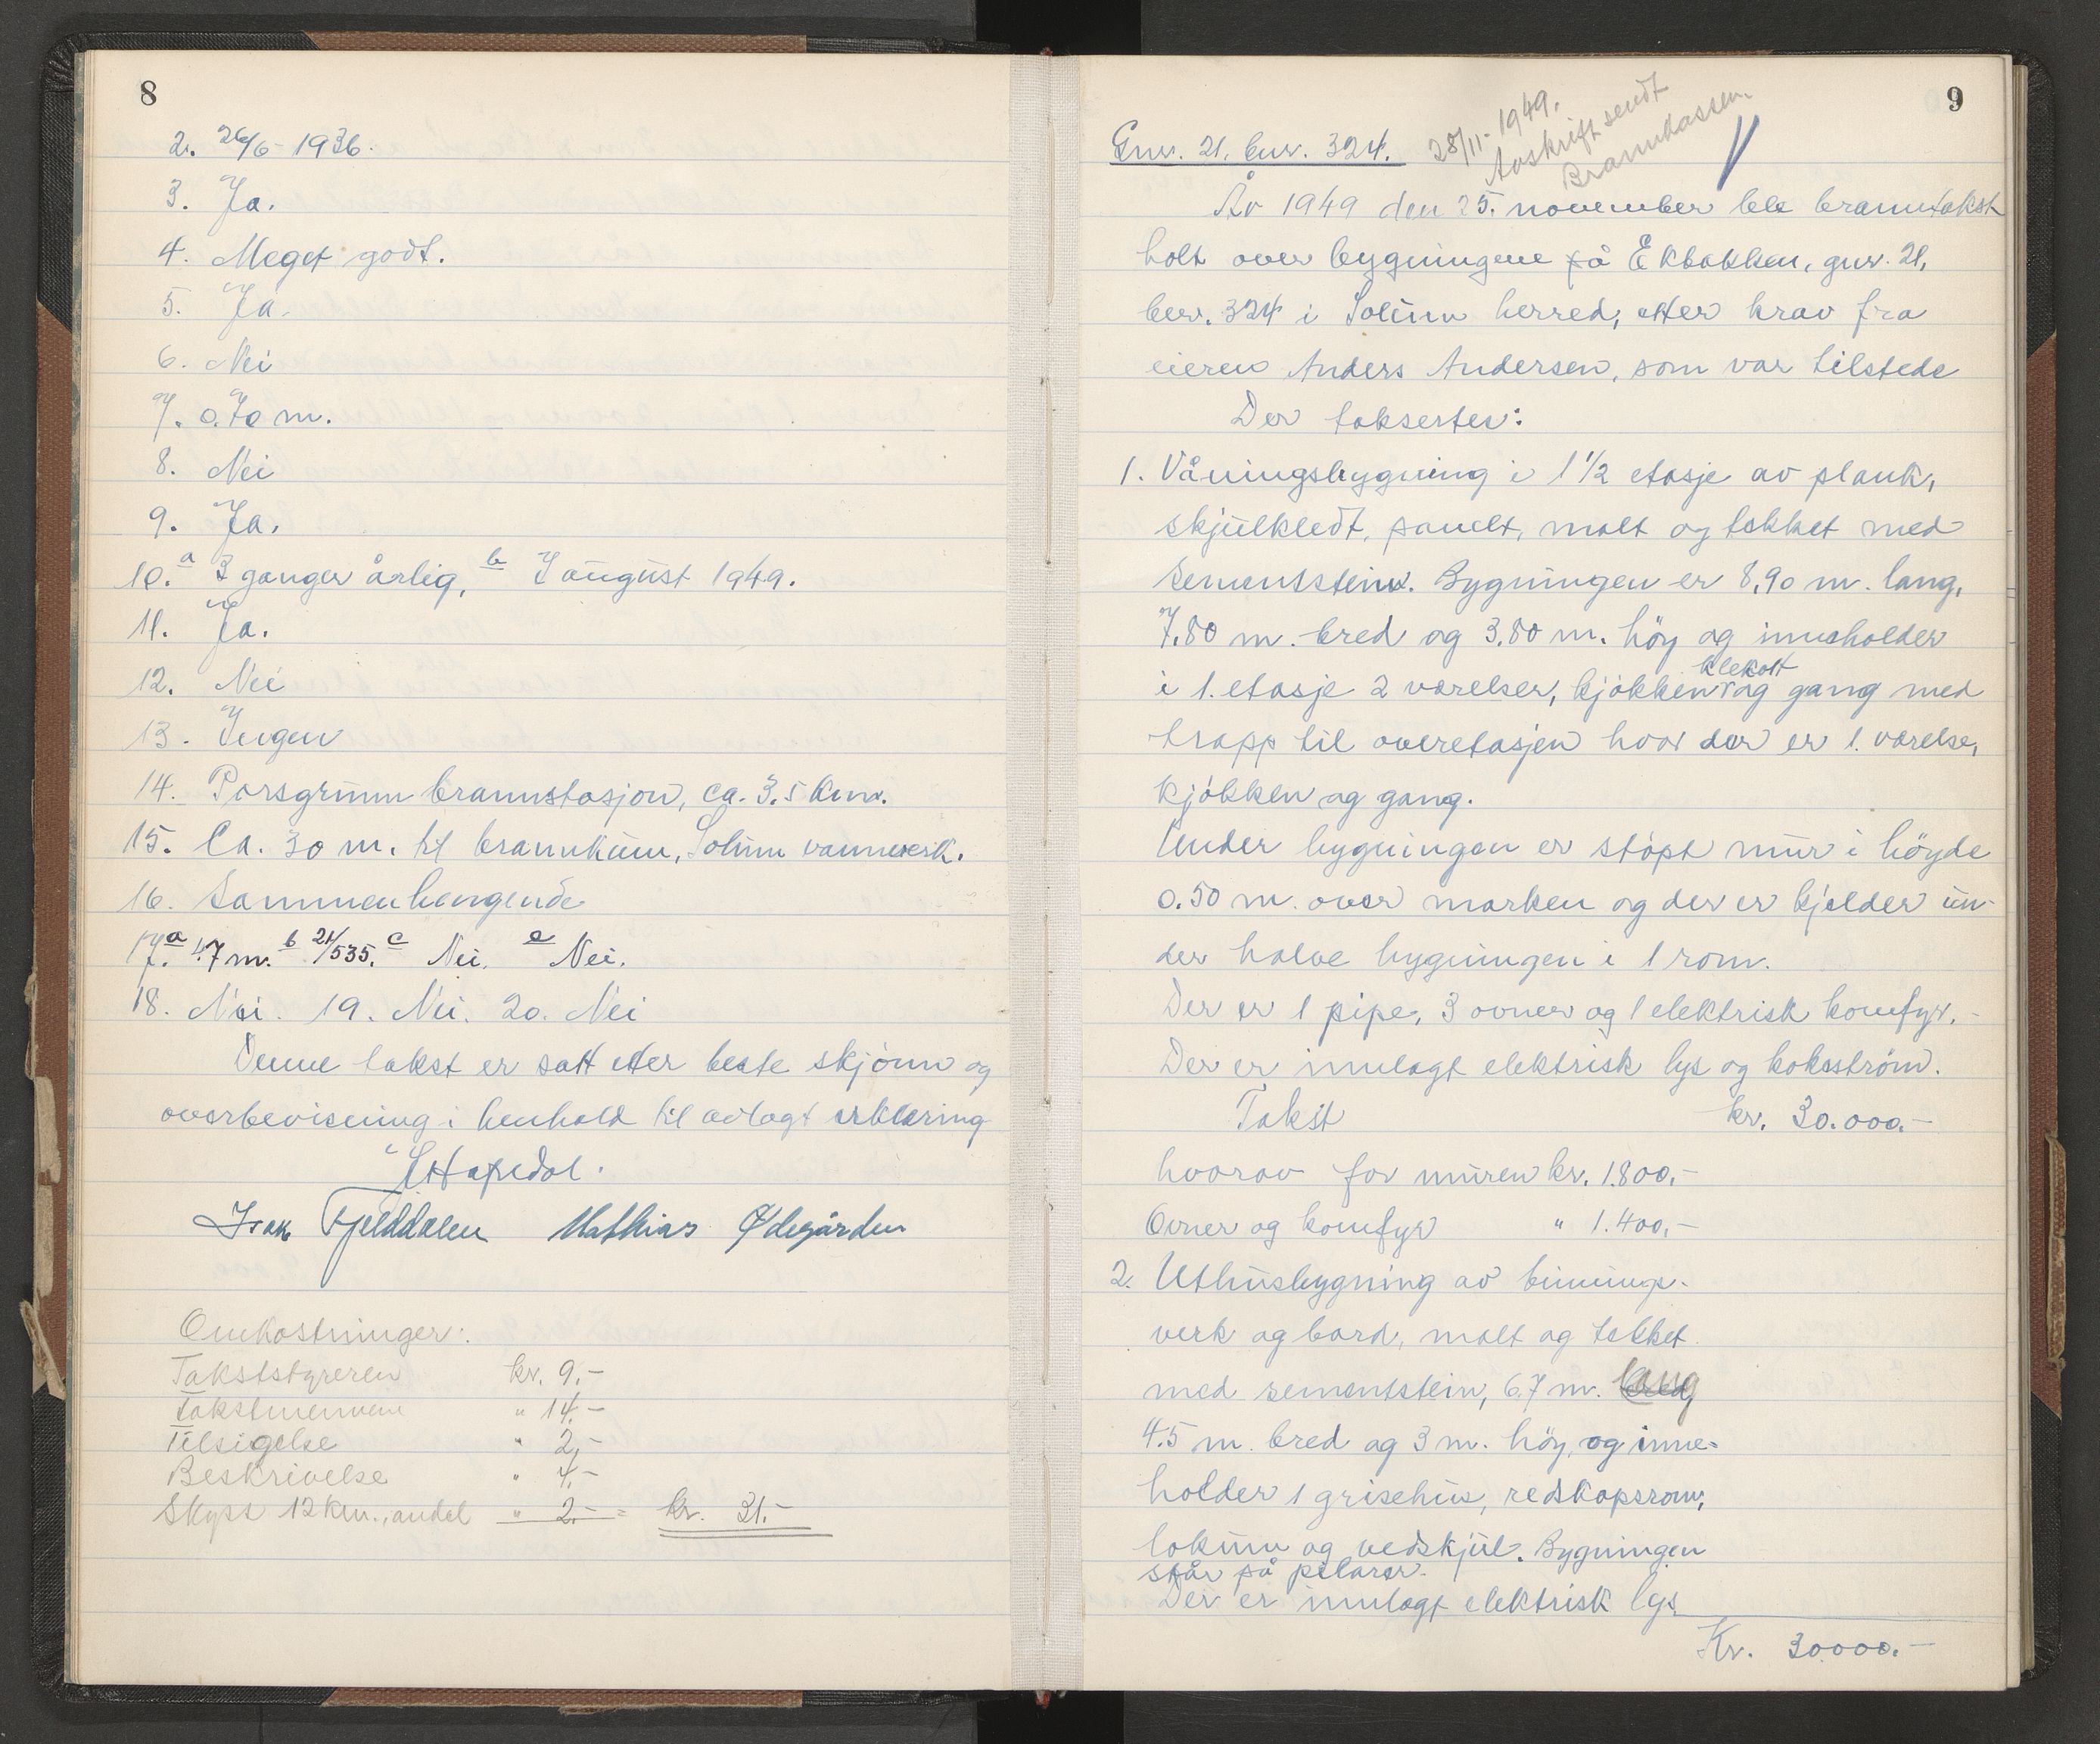 8
2. 26/6 - 1936.
3. Ja.
4. Meget godt.
5. Ja.
6. Nei
7. 0.70 m.
8. Nei
9. Ja.
10. a 3 ganger årlig, b 7 august 1949.
11. Ja.
12. Nei
13. Ingen
14. Porsgrunn brannstasjon, ca. 3.5 km.
15. Ca. 30 m. til brannkum, Solum vannverk.
16. Sammenhengende
17. a 47 m. b 21/535. c Nei. e Nei.
18. Nei. 19. Nei. 20. Nei
Denne takst er satt etter beste skjønn og
overbevisning i henhold til avlagt erklæring
Isak Fjelddalen Mathias Ødegården
Omkostninger:
Takststyreren kr. 9.-
Takstmennene " 14.-
Tilsigelse " 2,-
Beskrivelse " 4,-
Skyss 12 km., andel " 2.- = kr. 31.-
9
28/11-1949.
Avskrift sendt
Brannkassen.
Gnr. 21. bnr. 324.
År 1949 den 25. november ble branntakst
holt over bygningene på Ekbakken, gnr. 21,
bnr. 324 i Solum herred, etter krav fra
eieren Anders Andersen, som var tilstede
Der takseres:
1. Våningsbygning i 1 1/2 etasje av plank,
skjulkledt, panelt, malt og tekket med
sementstein. Bygningen er 8,90 m. lang,
7.80 m. bred og 3.80 m. höy og inneholder
klekott
i 1. etasje 2 værelser, kjøkken og gang med
trapp til overetasjen hvor der er 1. værelse,
kjøkken og gang.
Under bygningen er støpt mur i höyde
0.50 m. over marken og der er kjelder un-
der halve bygningen i 1 rom.
Der er 1 pipe, 3 ovner og 1 elektrisk komfyr.
Der er innlagt elektrisk lys og kokestrøm.
Takst kr. 30.000.-
hvorav for muren kr. 1.800.-
Ovner og komfyr " 1.400.-
2. Uthusbygning av binnings-
verk og bord, malt og tekket
med sementstein, 6.7 m. lang
4.5 m. bred og 3 m. höy, og inne-
holder 1 grisehus, redskapsrom,
lokum og vedskjul. Bygningen
står på pilarer.
Der er innlagt elektrisk lys
Kr. 30000.-